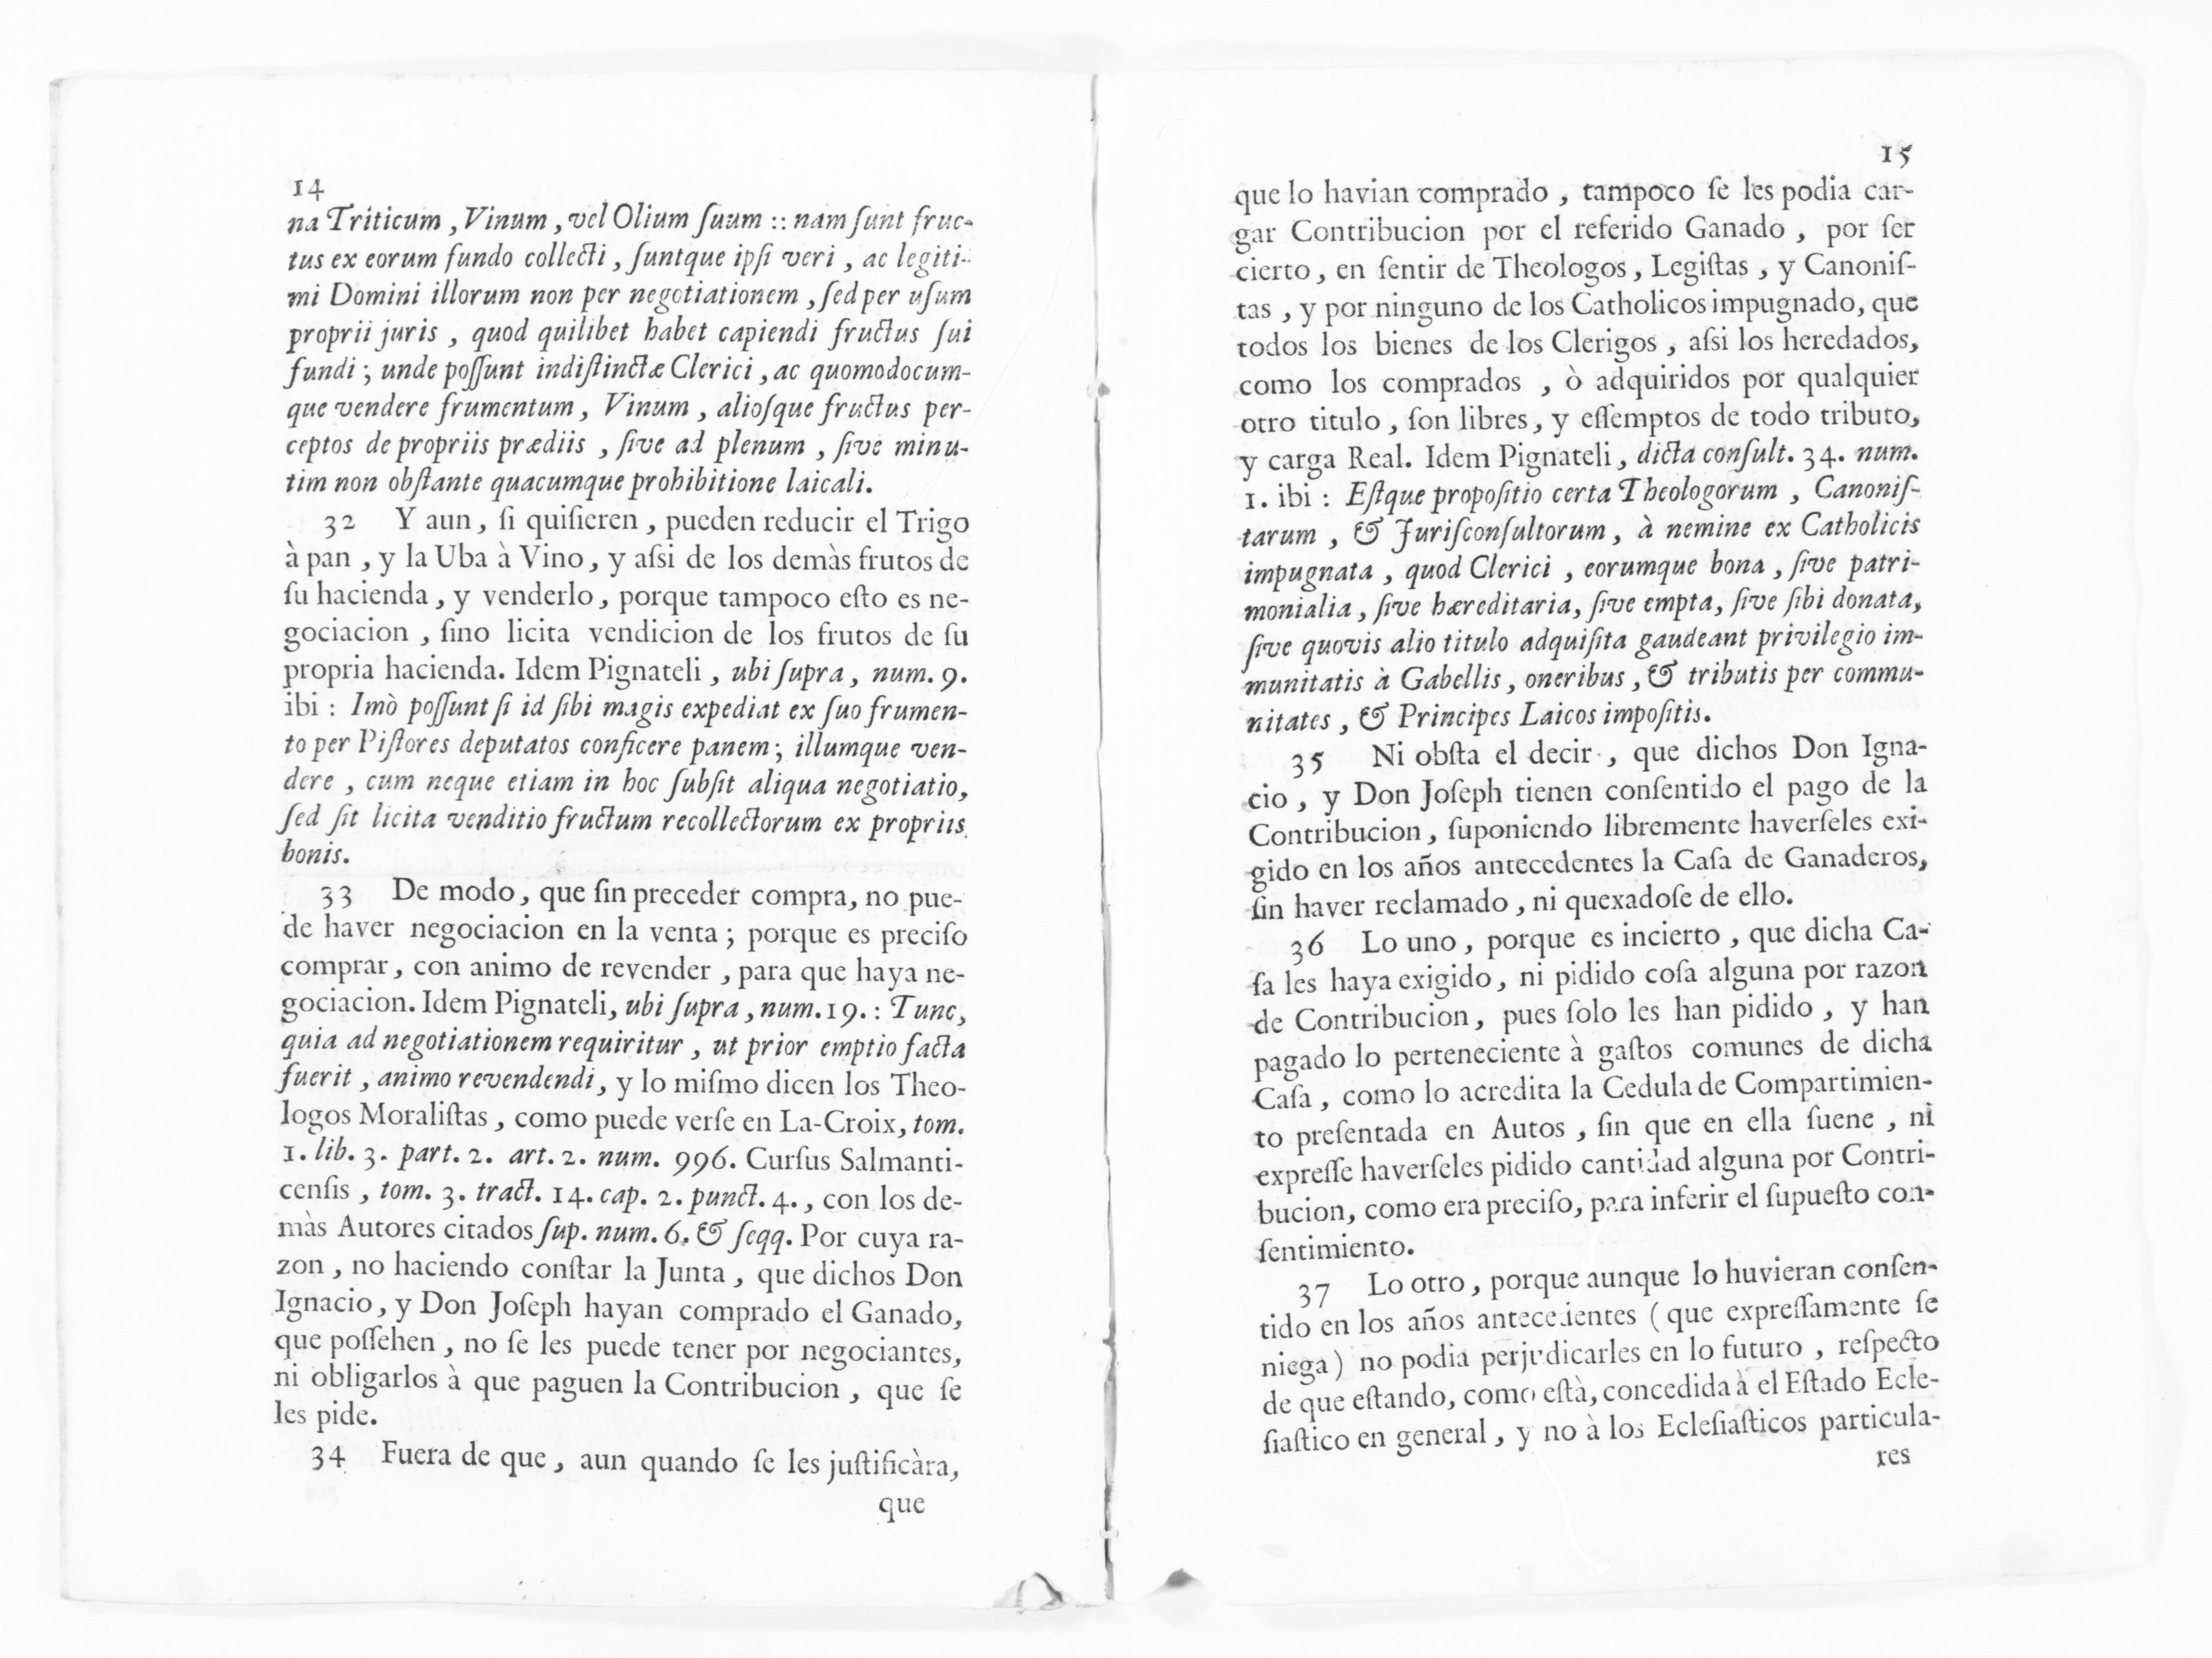 14
na Triticum , Vinum , vel Olium ſuum :: nam ſunt fruc-
tus ex eorum fundo collecti , ſuntque ipſi veri , ac legiti-
mi Domini illorum non per negotiationem , ſed per uſum
proprii juris , quod quilibet habet capiendi fructus ſui
fundi ; unde poſſunt indiſtinctæ Clerici , ac quomodocum-
que vendere frumentum , Vinum , alioſque fructus per-
ceptos de propriis prædiis , ſive ad plenum , ſive minu-
tim non obſtante quacumque prohibitione laicali.
32 Y aun , ſi quiſieren , pueden reducir el Trigo
à pan , y la Uba à Vino , y aſsi de los demàs frutos de
ſu hacienda , y venderlo , porque tampoco eſto es ne-
gociacion , ſino licita vendicion de los frutos de ſu
propria hacienda. Idem Pignateli , ubi ſupra , num. 9.
ibi : Imò poſſunt ſi id ſibi magis expediat ex ſuo frumen-
to per Piſtores deputatos conficere panem ; illumque ven-
dere , cum neque etiam in hoc ſubſit aliqua negotiatio,
ſed ſit licita venditio fructum recollectorum ex propriis
bonis.
33 De modo , que ſin preceder compra, no pue-
de haver negociacion en la venta ; porque es preciſo
comprar , con animo de revender , para que haya ne-
gociacion. Idem Pignateli, ubi ſupra , num. 19. : Tunc,
quia ad negotiationem requiritur , ut prior emptio facta
fuerit , animo revendendi , y lo miſmo dicen los Theo-
logos Moraliſtas , como puede verſe en La-Croix, tom.
1. lib. 3. part. 2. art. 2. num. 996. Curſus Salmanti-
cenſis , tom. 3. tract. 14. cap. 2. punct. 4. , con los de-
màs Autores citados ſup. num. 6. & ſeqq. Por cuya ra-
zon , no haciendo conſtar la Junta , que dichos Don
Ignacio, y Don Joſeph hayan comprado el Ganado,
que poſſehen , no ſe les puede tener por negociantes,
ni obligarlos à que paguen la Contribucion , que ſe
les pide.
34 Fuera de que , aun quando ſe les juſtificàra,
que
15
que lo havian comprado , tampoco ſe les podia car-
gar Contribucion por el referido Ganado , por ſer
cierto , en ſentir de Theologos , Legiſtas , y Canoniſ-
tas , y por ninguno de los Catholicos impugnado, que
todos los bienes de los Clerigos , aſsi los heredados,
como los comprados , ò adquiridos por qualquier
otro titulo , ſon libres, y eſſemptos de todo tributo,
y carga Real. Idem Pignateli , dicta conſult. 34. num.
1. ibi : Eſtque propoſitio certa Theologorum , Canoniſ-
tarum , & Juriſconſultorum , à nemine ex Catholicis
impugnata , quod Clerici , eorumque bona , ſive patri-
monialia , ſive hæreditaria, ſive empta, ſive ſibi donata,
ſive quovis alio titulo adquiſita gaudeant privilegio im-
munitatis à Gabellis , oneribus , & tributis per commu-
nitates , & Principes Laicos impoſitis.
35 Ni obſta el decir , que dichos Don Igna-
cio , y Don Joſeph tienen conſentido el pago de la
Contribucion , ſuponiendo libremente haverſeles exi-
gido en los años antecedentes la Caſa de Ganaderos,
ſin haver reclamado , ni quexadoſe de ello.
36 Lo uno , porque es incierto , que dicha Ca-
ſa les haya exigido , ni pidido coſa alguna por razon
de Contribucion , pues ſolo les han pidido , y han
pagado lo perteneciente à gaſtos comunes de dicha
Caſa , como lo acredita la Cedula de Compartimien-
to preſentada en Autos , ſin que en ella ſuene , ni
expreſſe haverſeles pidido cantidad alguna por Contri-
bucion, como era preciſo, para inferir el ſupueſto con-
ſentimiento.
37 Lo otro , porque aunque lo huvieran conſen-
tido en los años antecedentes ( que expreſſamente ſe
niega ) no podia perjudicarles en lo futuro , reſpecto
de que eſtando, como eſtà, concedida à el Eſtado Ecle-
ſiaſtico en general , y no à los Ecleſiaſticos particula-
res